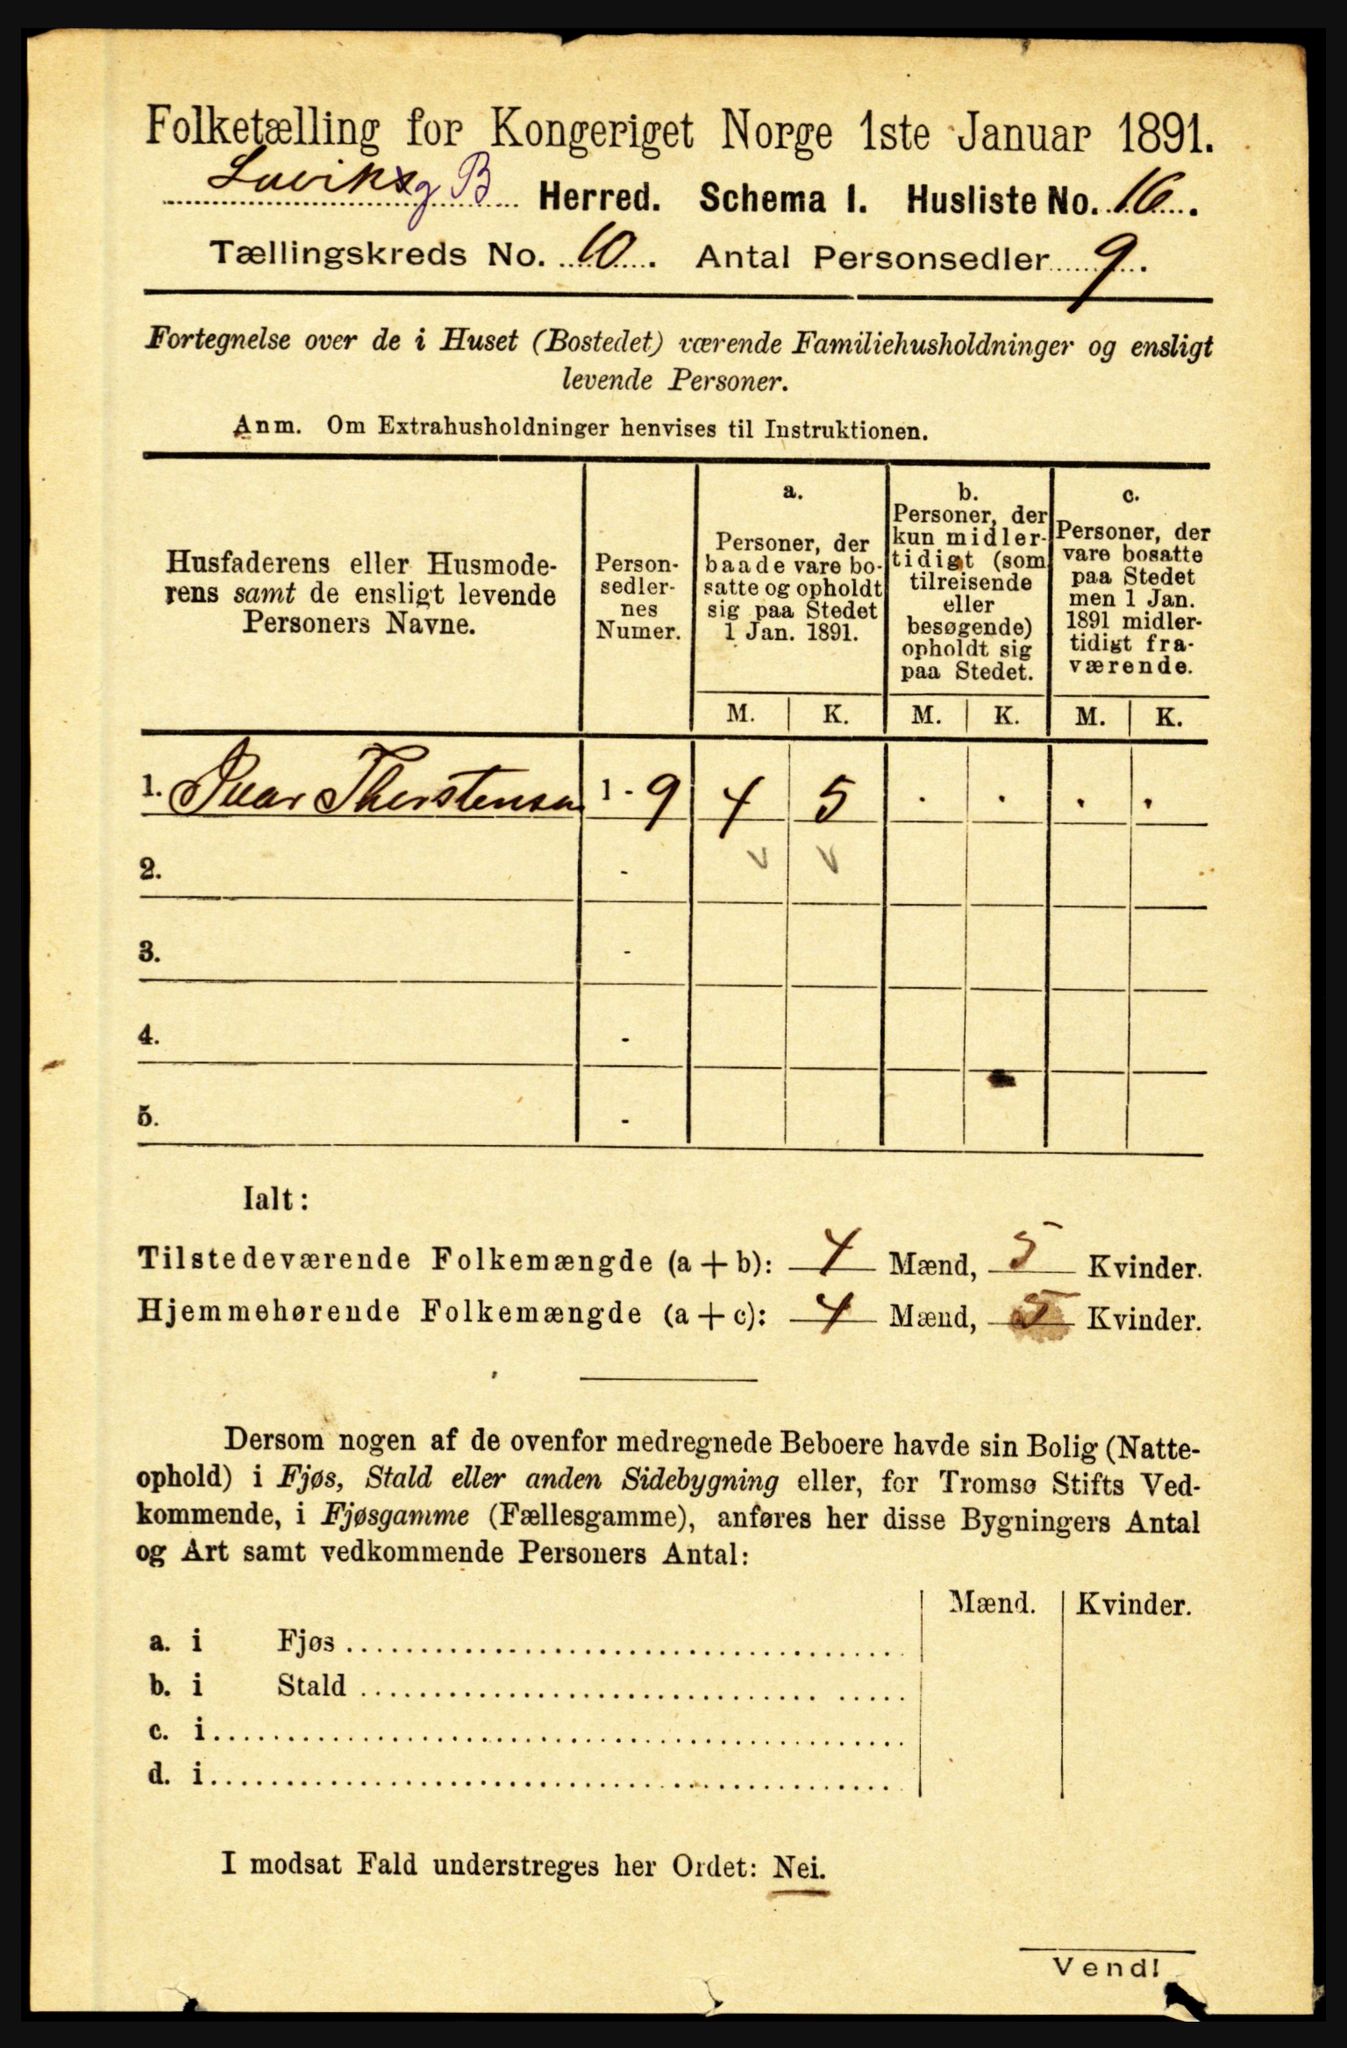 Folketælling for Kongeriget Norge 1ste Januar 1891.
Laviks og B Herred. Schema I. Husliste No. 16.
Tællingskreds No. 10. Antal Personsedler 9.
Fortegnelse over de i Huset (Bostedet) værende Familiehusholdninger og ensligt
levende Personer.
Anm. Om Extrahusholdninger henvises til Instruktionen.
Husfaderens eller Husmode-
rens samt de ensligt levende
Personers Navne.
Person-
sedler-
nes
Numer.
a.
Personer, der
baade vare bo-
satte og opholdt
sig paa Stedet
1 Jan. 1891.
b.
Personer, der
kun midler-
tidigt (som
tilreisende
eller
besøgende)
opholdt sig
paa Stedet.
c.
Personer, der
vare bosatte
paa Stedet
men 1 Jan.
1891 midler-
tidigt fra-
værende.
M. K. M. K. M. K.
1. Ivar Thorstensen 1 - 9 4 5 . . . .
2. -
3. -
4. -
5. -
Ialt:
Tilstedeværende Folkemængde (a + b): 4 Mænd, 5 Kvinder.
Hjemmehørende Folkemængde (a + c): 4 Mænd, 5 Kvinder.
Dersom nogen af de ovenfor medregnede Beboere havde sin Bolig (Natte-
ophold) i Fjøs, Stald eller anden Sidebygning eller, for Tromsø Stifts Ved-
kommende, i Fjøsgamme (Fællesgamme), anføres her disse Bygningers Antal
og Art samt vedkommende Personers Antal:
Mænd. Kvinder.
a. i Fjøs
b. i Stald
c. i
d. i
I modsat Fald understreges her Ordet: Nei.
Vend!